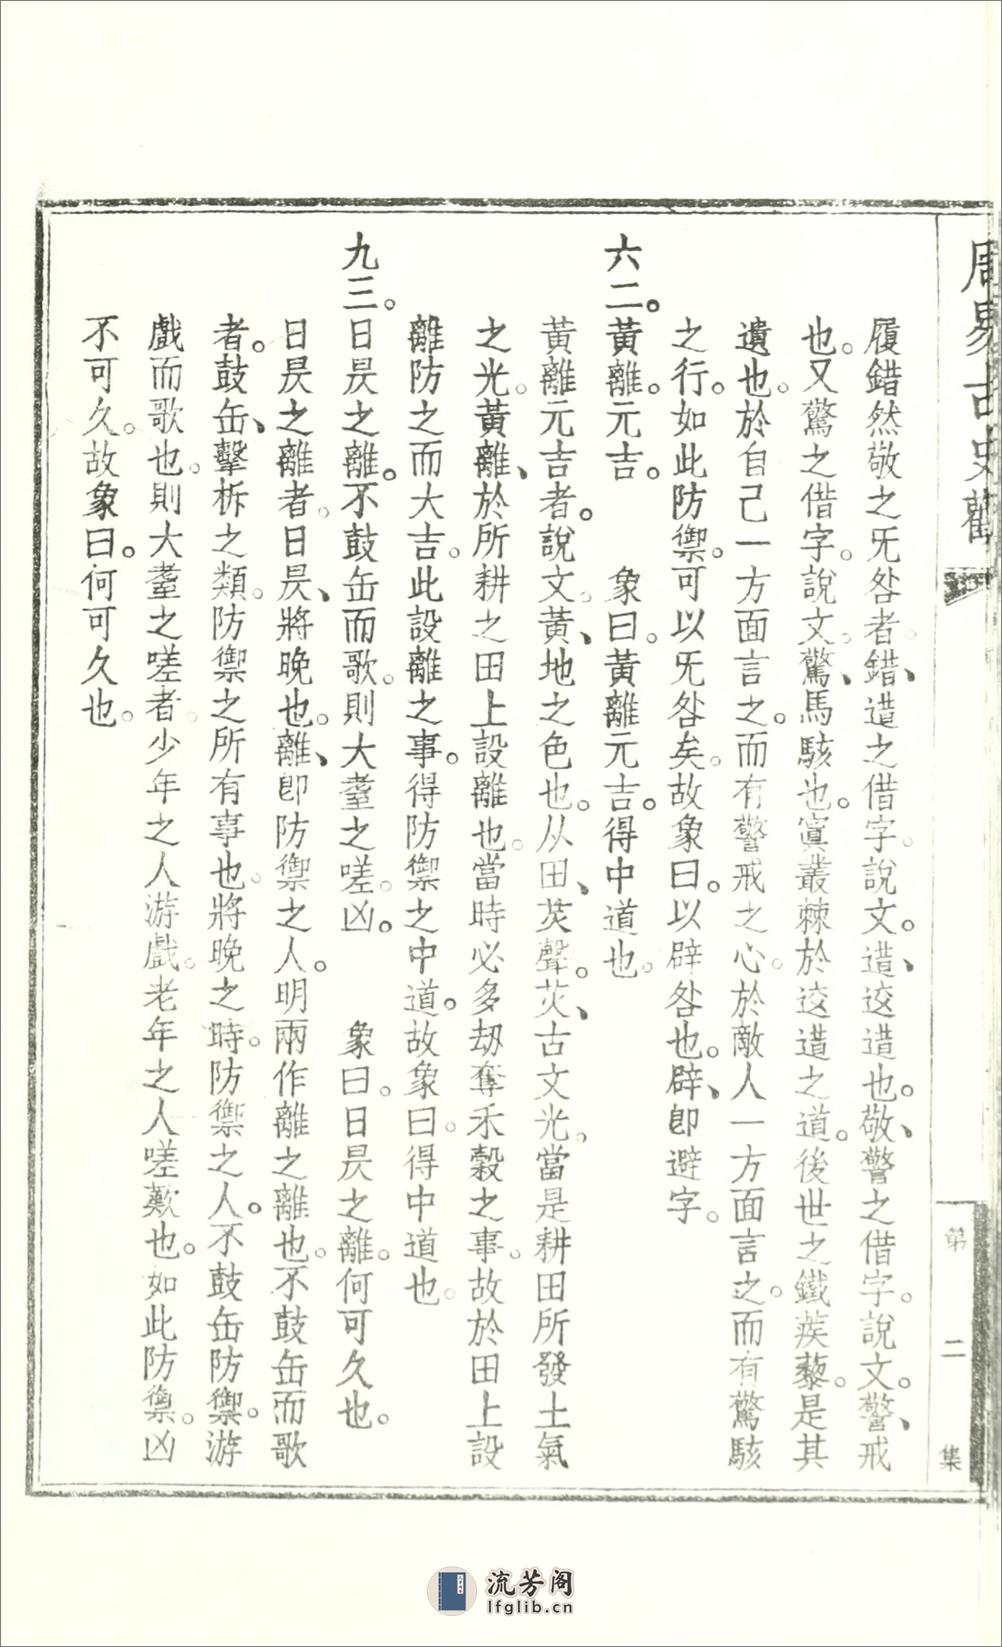 周易古史觀
第二集
履錯然敬之旡咎者、錯逪之借字。說文。逪、迻逪也。敬、警之借字。說文。警、戒
也。又驚之借字。說文。驚、馬駭也。寘叢棘於迻逪之道。後世之鐵蒺藜。是其
遺也。於自己一方面言之。而有警戒之心。於敵人一方面言之。而有驚駭
之行。如此防禦。可以旡咎矣。故象曰。以辟咎也。辟、卽避字。
六二。黃離。元吉。 象曰。黃離元吉。得中道也。
黃離元吉者。說文。黃、地之色也。从田、炗聲。炗、古文光。當是耕田所發土氣
之光。黃離、於所耕之田上設離也。當時必多刼奪禾穀之事。故於田上設
離防之而大吉。此設離之事。得防禦之中道。故象曰。得中道也。
九三。日昃之離。不鼓缶而歌。則大耋之嗟。凶。 象曰。日昃之離。何可久也。
日昃之離者。日昃、將晚也。離、卽防禦之人。明兩作離之離也。不鼓缶而歌
者。鼓缶、擊柝之類。防禦之所有事也。將晚之時。防禦之人。不鼓缶防禦。游
戲而歌也。則大耋之嗟者。少年之人游戲。老年之人嗟歎也。如此防禦。凶
不可久。故象曰。何可久也。
流芳阁
lfglib.cn